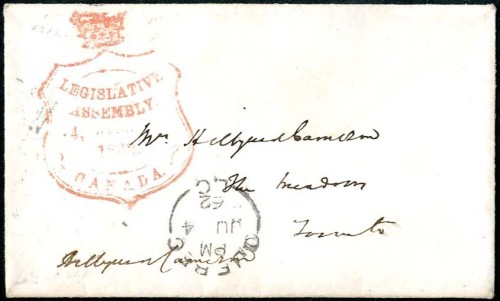 LEGISLATIVE
ASSEMBLY.
4,
CANADA
Mrs Hillyard Cameron
The Meadows
Toronto
QUEBEC
PM
JU 4
62
L.C
Hillyard Cameron